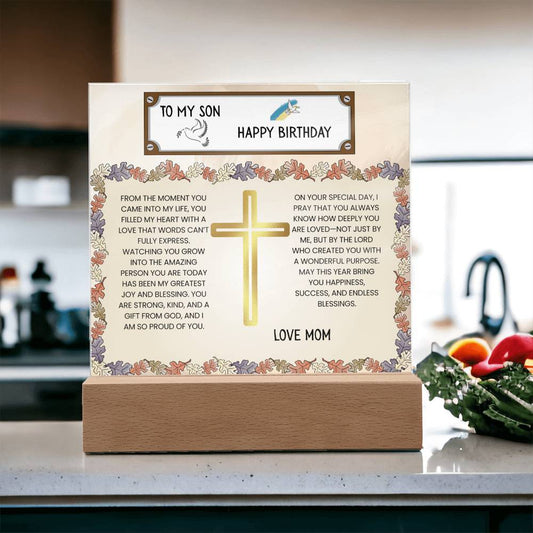 TO MY SON
HAPPY BIRTHDAY
FROM THE MOMENT YOU
CAME INTO MY LIFE, YOU
FILLED MY HEART WITH A
LOVE THAT WORDS CAN'T
FULLY EXPRESS.
WATCHING YOU GROW
INTO THE AMAZING
PERSON YOU ARE TODAY
HAS BEEN MY GREATEST
JOY AND BLESSING. YOU
ARE STRONG, KIND, AND A
GIFT FROM GOD, AND I
AM SO PROUD OF YOU.
ON YOUR SPECIAL DAY, I
PRAY THAT YOU ALWAYS
KNOW HOW DEEPLY YOU
ARE LOVED—NOT JUST BY
ME, BUT BY THE LORD
WHO CREATED YOU WITH
A WONDERFUL PURPOSE.
MAY THIS YEAR BRING
YOU HAPPINESS,
SUCCESS, AND ENDLESS
BLESSINGS.
LOVE MOM